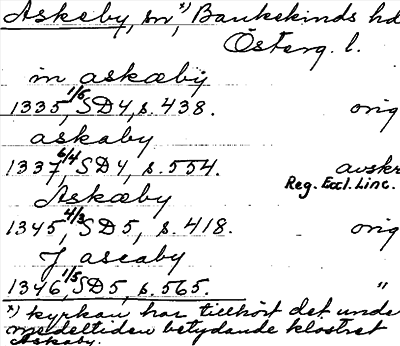 Askeby, sn, *) Bankekinds hd
Österg. l.
in askæby
1335 1/6, SD4, s. 438. orig
askaby
1337 6/4, SD4, s. 554. avskr
Reg. Eccl. Linc.
Askæby
1345 4/3, SD5, s. 418. orig
J ascaby
1346 1/5, SD5, s. 565. "
*) kyrkan har tillhört det unde
medeltiden betydande klostret
Askaby.